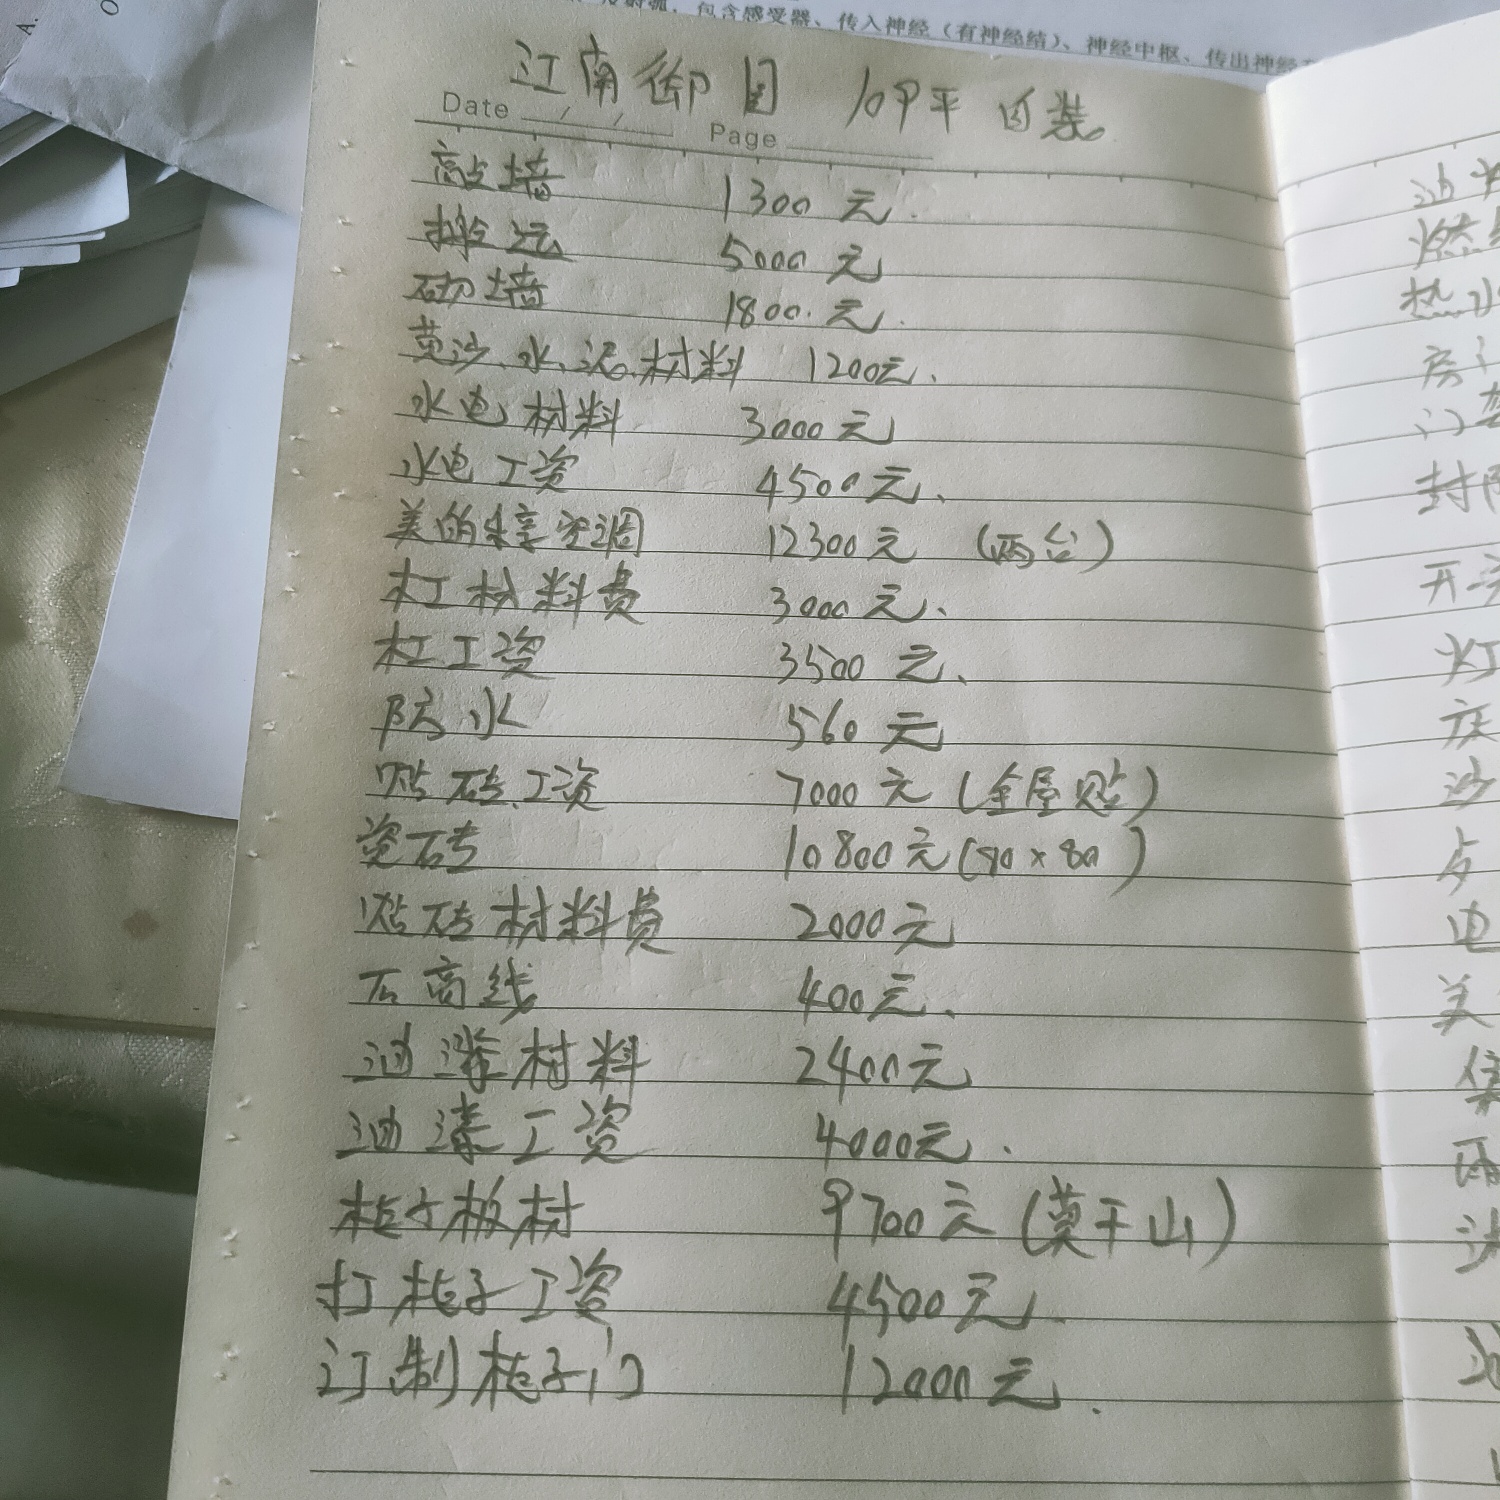 包含感受器、传入神经（有神经结）、神经中枢、传出神经
江南御园 109平 自装
Date / / Page
敲墙 1300元.
搬运 5000元
砌墙 1800.元.
黄沙.水泥.材料 1200元.
水电材料 3000元
水电工资 4500元、
美的 空调 12300元 (两台)
木工材料费 3000元、
木工工资 3500元、
防水 560元
贴砖工资 7000元(全屋贴)
瓷砖 10800元( ×80)
贴砖材料费 2000元
石膏线 400元、
油漆材料 2400元
油漆工资 4000元.
柜子板材 9700元(莫干山)
打柜子工资 4500元.
订制柜子门 12000元.
油
燃
热水
房门
封
开关
灯
沙
电
美